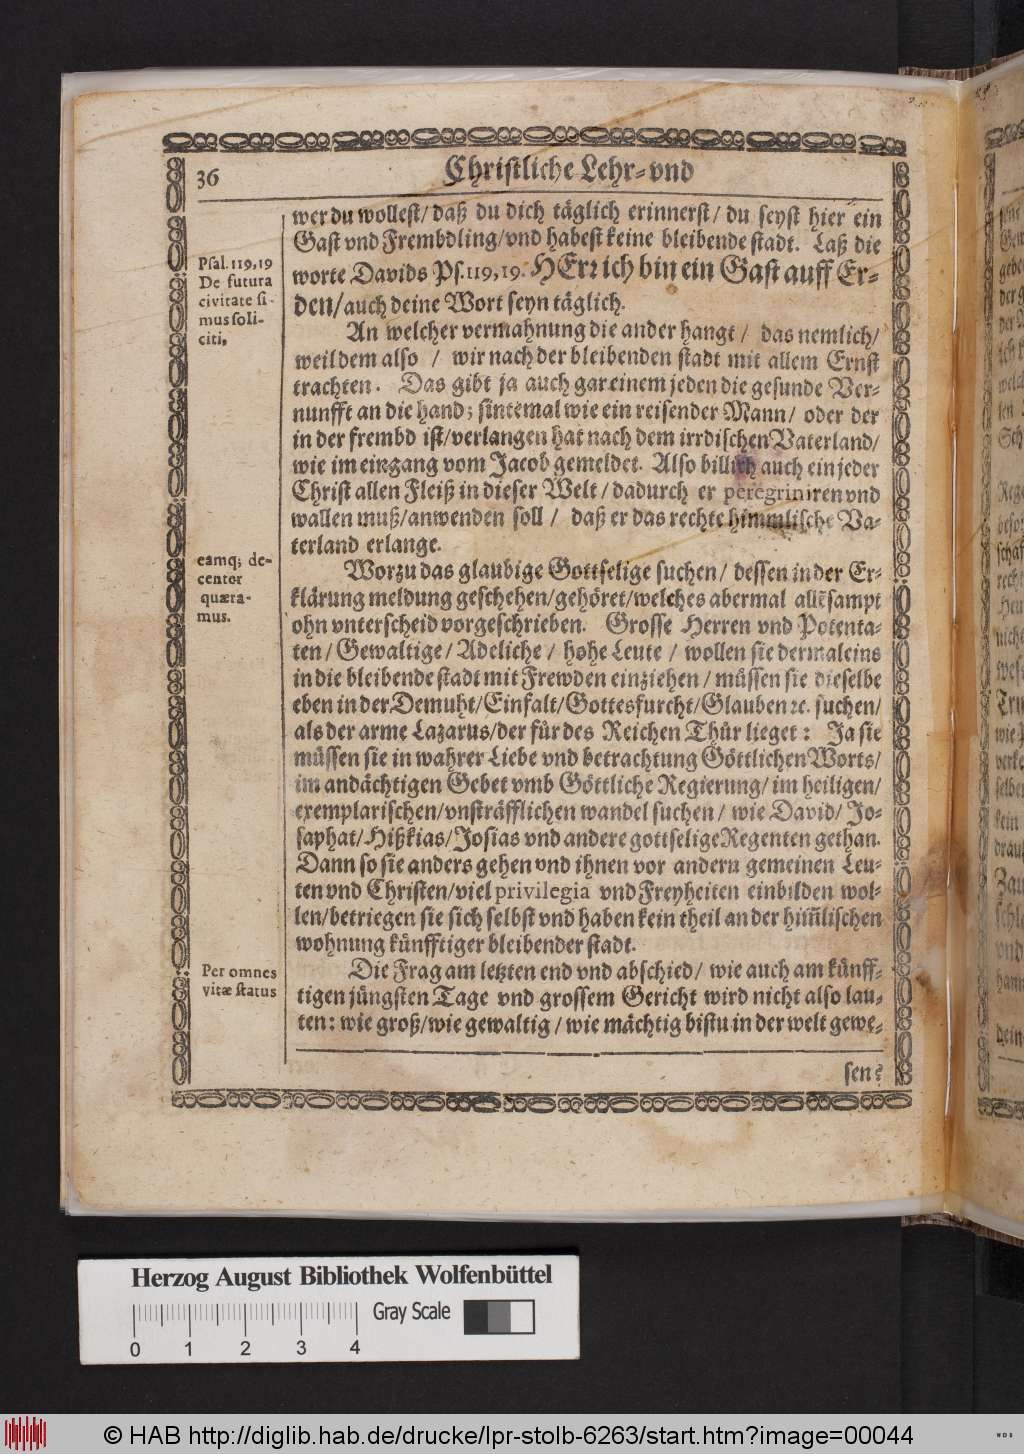 36
Christliche Lehr-vnd
wer du wollest/ daß du dich täglich erinnerst/ du seyst hier ein
Gast vnd Frembdling/ vnd habest keine bleibende stadt. Laß die
worte Davids Ps. 119, 19. HErr ich bin ein Gast auff Er-
den/ auch deine Wort seyn täglich.
Psal. 119, 19
De futura
civitate si-
mus soli-
citi,
An welcher vermahnung die ander hangt/ das nemlich/
weil dem also / wir nach der bleibenden stadt mit allem Ernst
trachten. Das gibt ja auch gar einem jeden die gesunde Ver-
nunfft an die hand; sintemal wie ein reisender Mann/ oder der
in der frembd ist/ verlangen hat nach dem irrdischen Vaterland/
wie im eingang vom Jacob gemeldet. Also billich auch ein jeder
Christ allen Fleiß in dieser Welt/ dadurch er peregriniren vnd
wallen muß/ anwenden soll / daß er das rechte himmlische Va-
terland erlange.
eamq; de-
center
quæra-
mus.
Worzu das glaubige Gottselige suchen/ dessen in der Er-
klärung meldung geschehen/ gehöret/ welches abermal allẽsampt
ohn vnterscheid vorgeschrieben. Grosse Herren vnd Potenta-
ten/ Gewaltige/ Adeliche/ hohe Leute / wollen sie dermaleins
in die bleibende stadt mit Frewden einziehen/ müssen sie dieselbe
eben in der Demuht/ Einfalt/ Gottesfurcht/ Glauben ꝛc. suchen/
als der arme Lazarus/ der für des Reichen Thür lieget: Ja sie
müssen sie in wahrer Liebe vnd betrachtung Göttlichen Worts/
im andächtigen Gebet vmb Göttliche Regierung/ im heiligen/
exemplarischen/ vnsträfflichen wandel suchen/ wie David/ Jo-
saphat/ Hißkias/ Josias vnd andere gottselige Regenten gethan.
Dann so sie anders gehen vnd ihnen vor andern gemeinen Leu-
ten vnd Christen/ viel privilegia vnd Freyheiten einbilden wol-
len/ betriegen sie sich selbst vnd haben kein theil an der him̃lischen
wohnung künfftiger bleibender stadt.
Per omnes
vitæ status
Die Frag am letzten end vnd abschied/ wie auch am künff-
tigen jüngsten Tage vnd grossem Gericht wird nicht also lau-
ten: wie groß/ wie gewaltig/ wie mächtig bistu in der welt gewe-
sen?
Herzog August Bibliothek Wolfenbüttel
Gray Scale
0 1 2 3 4
© HAB http://diglib.hab.de/drucke/lpr-stolb-6263/start.htm?image=00044